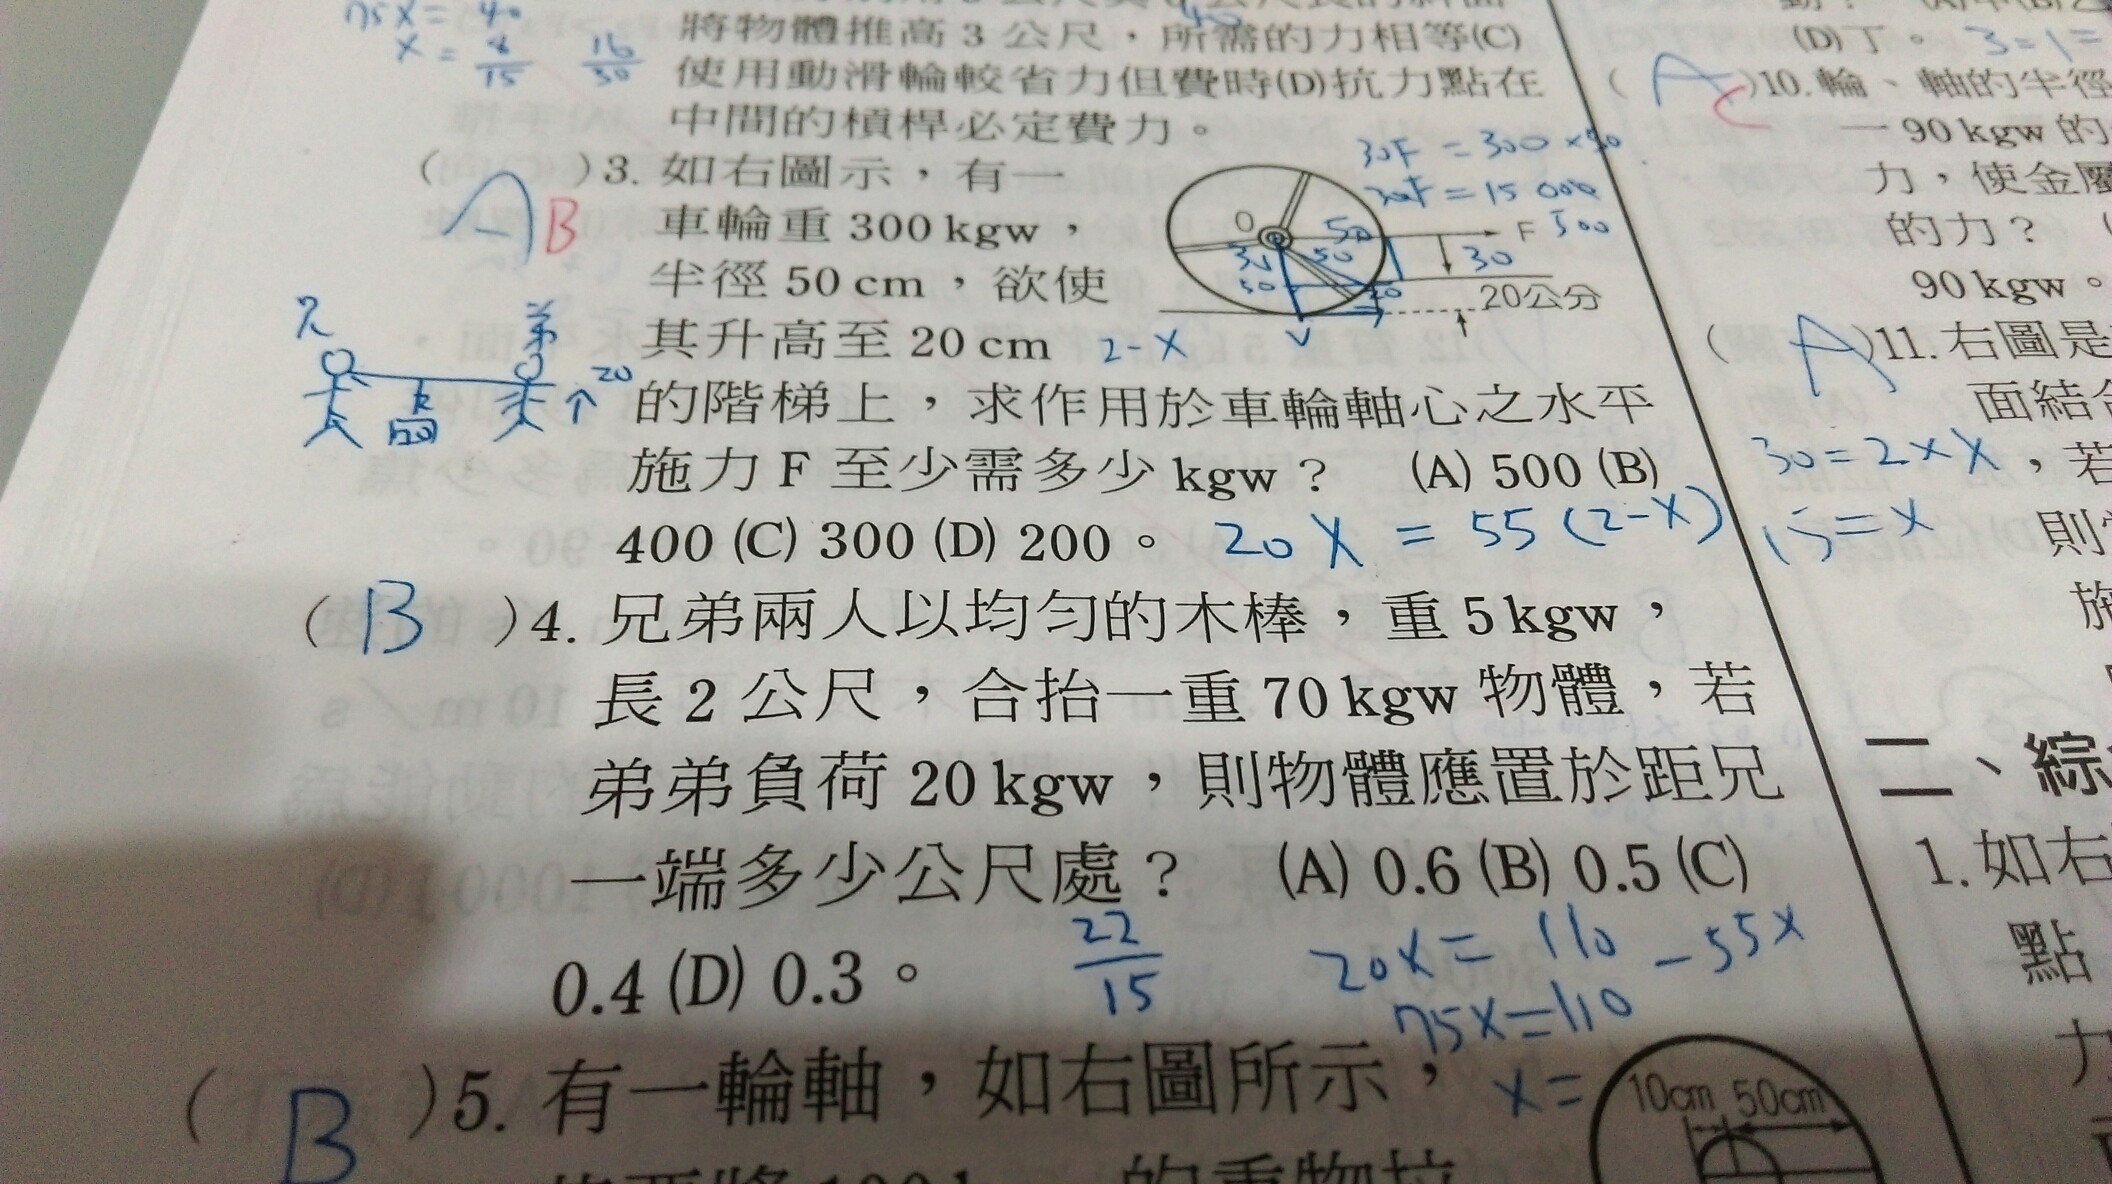 75X = 40
X = 8/15 16/30
將物體推高 3 公尺，所需的力相等(C)
使用動滑輪較省力但費時(D)抗力點在
中間的槓桿必定費力。
( A B )3. 如右圖示，有一
車輪重 300 kgw，
半徑 50 cm，欲使
其升高至 20 cm
的階梯上，求作用於車輪軸心之水平
施力 F 至少需多少 kgw？ (A) 500 (B)
400 (C) 300 (D) 200。
30F = 300 × 50
30F = 15000
O 50 F 500
50 30
20公分
2-X
兄 弟
20
20X = 55(2-X)
( B )4. 兄弟兩人以均勻的木棒，重 5 kgw，
長 2 公尺，合抬一重 70 kgw 物體，若
弟弟負荷 20 kgw，則物體應置於距兄
一端多少公尺處？ (A) 0.6 (B) 0.5 (C)
0.4 (D) 0.3。
22/15
20X = 110 - 55X
75X = 110
X =
( B )5. 有一輪軸，如右圖所示，
10cm 50cm
(D)丁。 3=1=
( A C )10. 輪、軸的半徑
一 90 kgw 的
力，使金屬
的力？ (
90 kgw。
( A )11. 右圖是
面結合
30=2×X ，若
15=X 則
施
二、綜
1. 如右
點
力